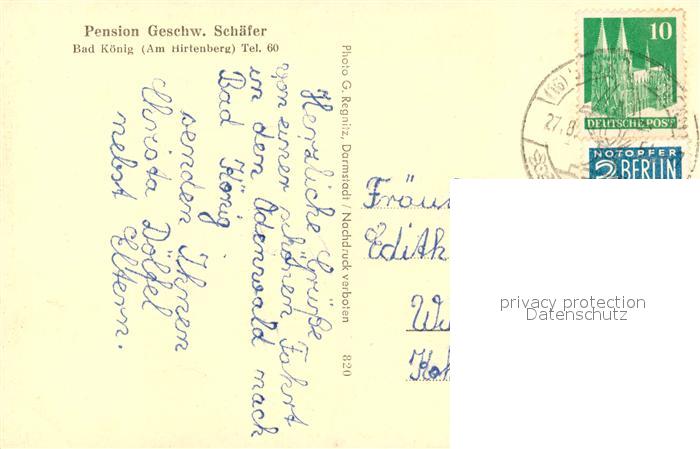 Pension Geschw. Schäfer
Bad König (Am Hirtenberg) Tel. 60
Herzliche Grüße
von einer schönen Fahrt
in den Odenwald nach
Bad König
senden Ihnen
Christa Dölfel
nebst Eltern.
Photo G. Regnitz, Darmstadt / Nachdruck verboten
820
10
DEUTSCHE POST
(16)
27.8.
NOTOPFER
2 BERLIN
Fräu
Edith
privacy protection
Datenschutz